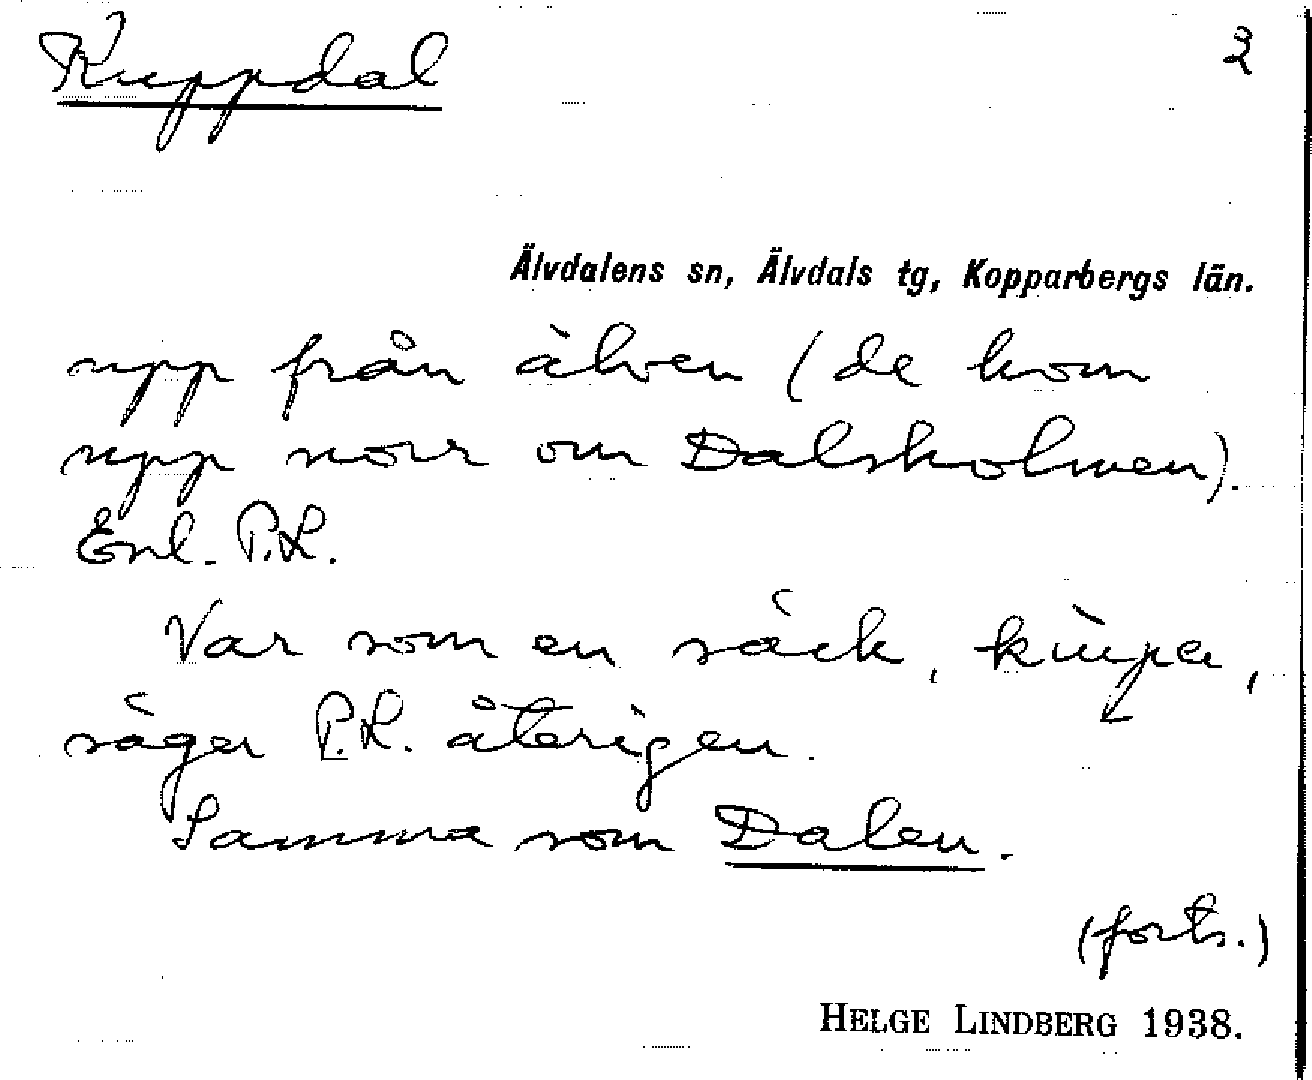 Kuppdal 2
Älvdalens sn, Älvdals tg, Kopparbergs län.
upp från älven (de kom
upp norr om Dalsholmen).
Enl. P.L.
Var som en säck,
säger P.L. återigen.
Samma som Dalen.
(forts.)
HELGE LINDBERG 1938.